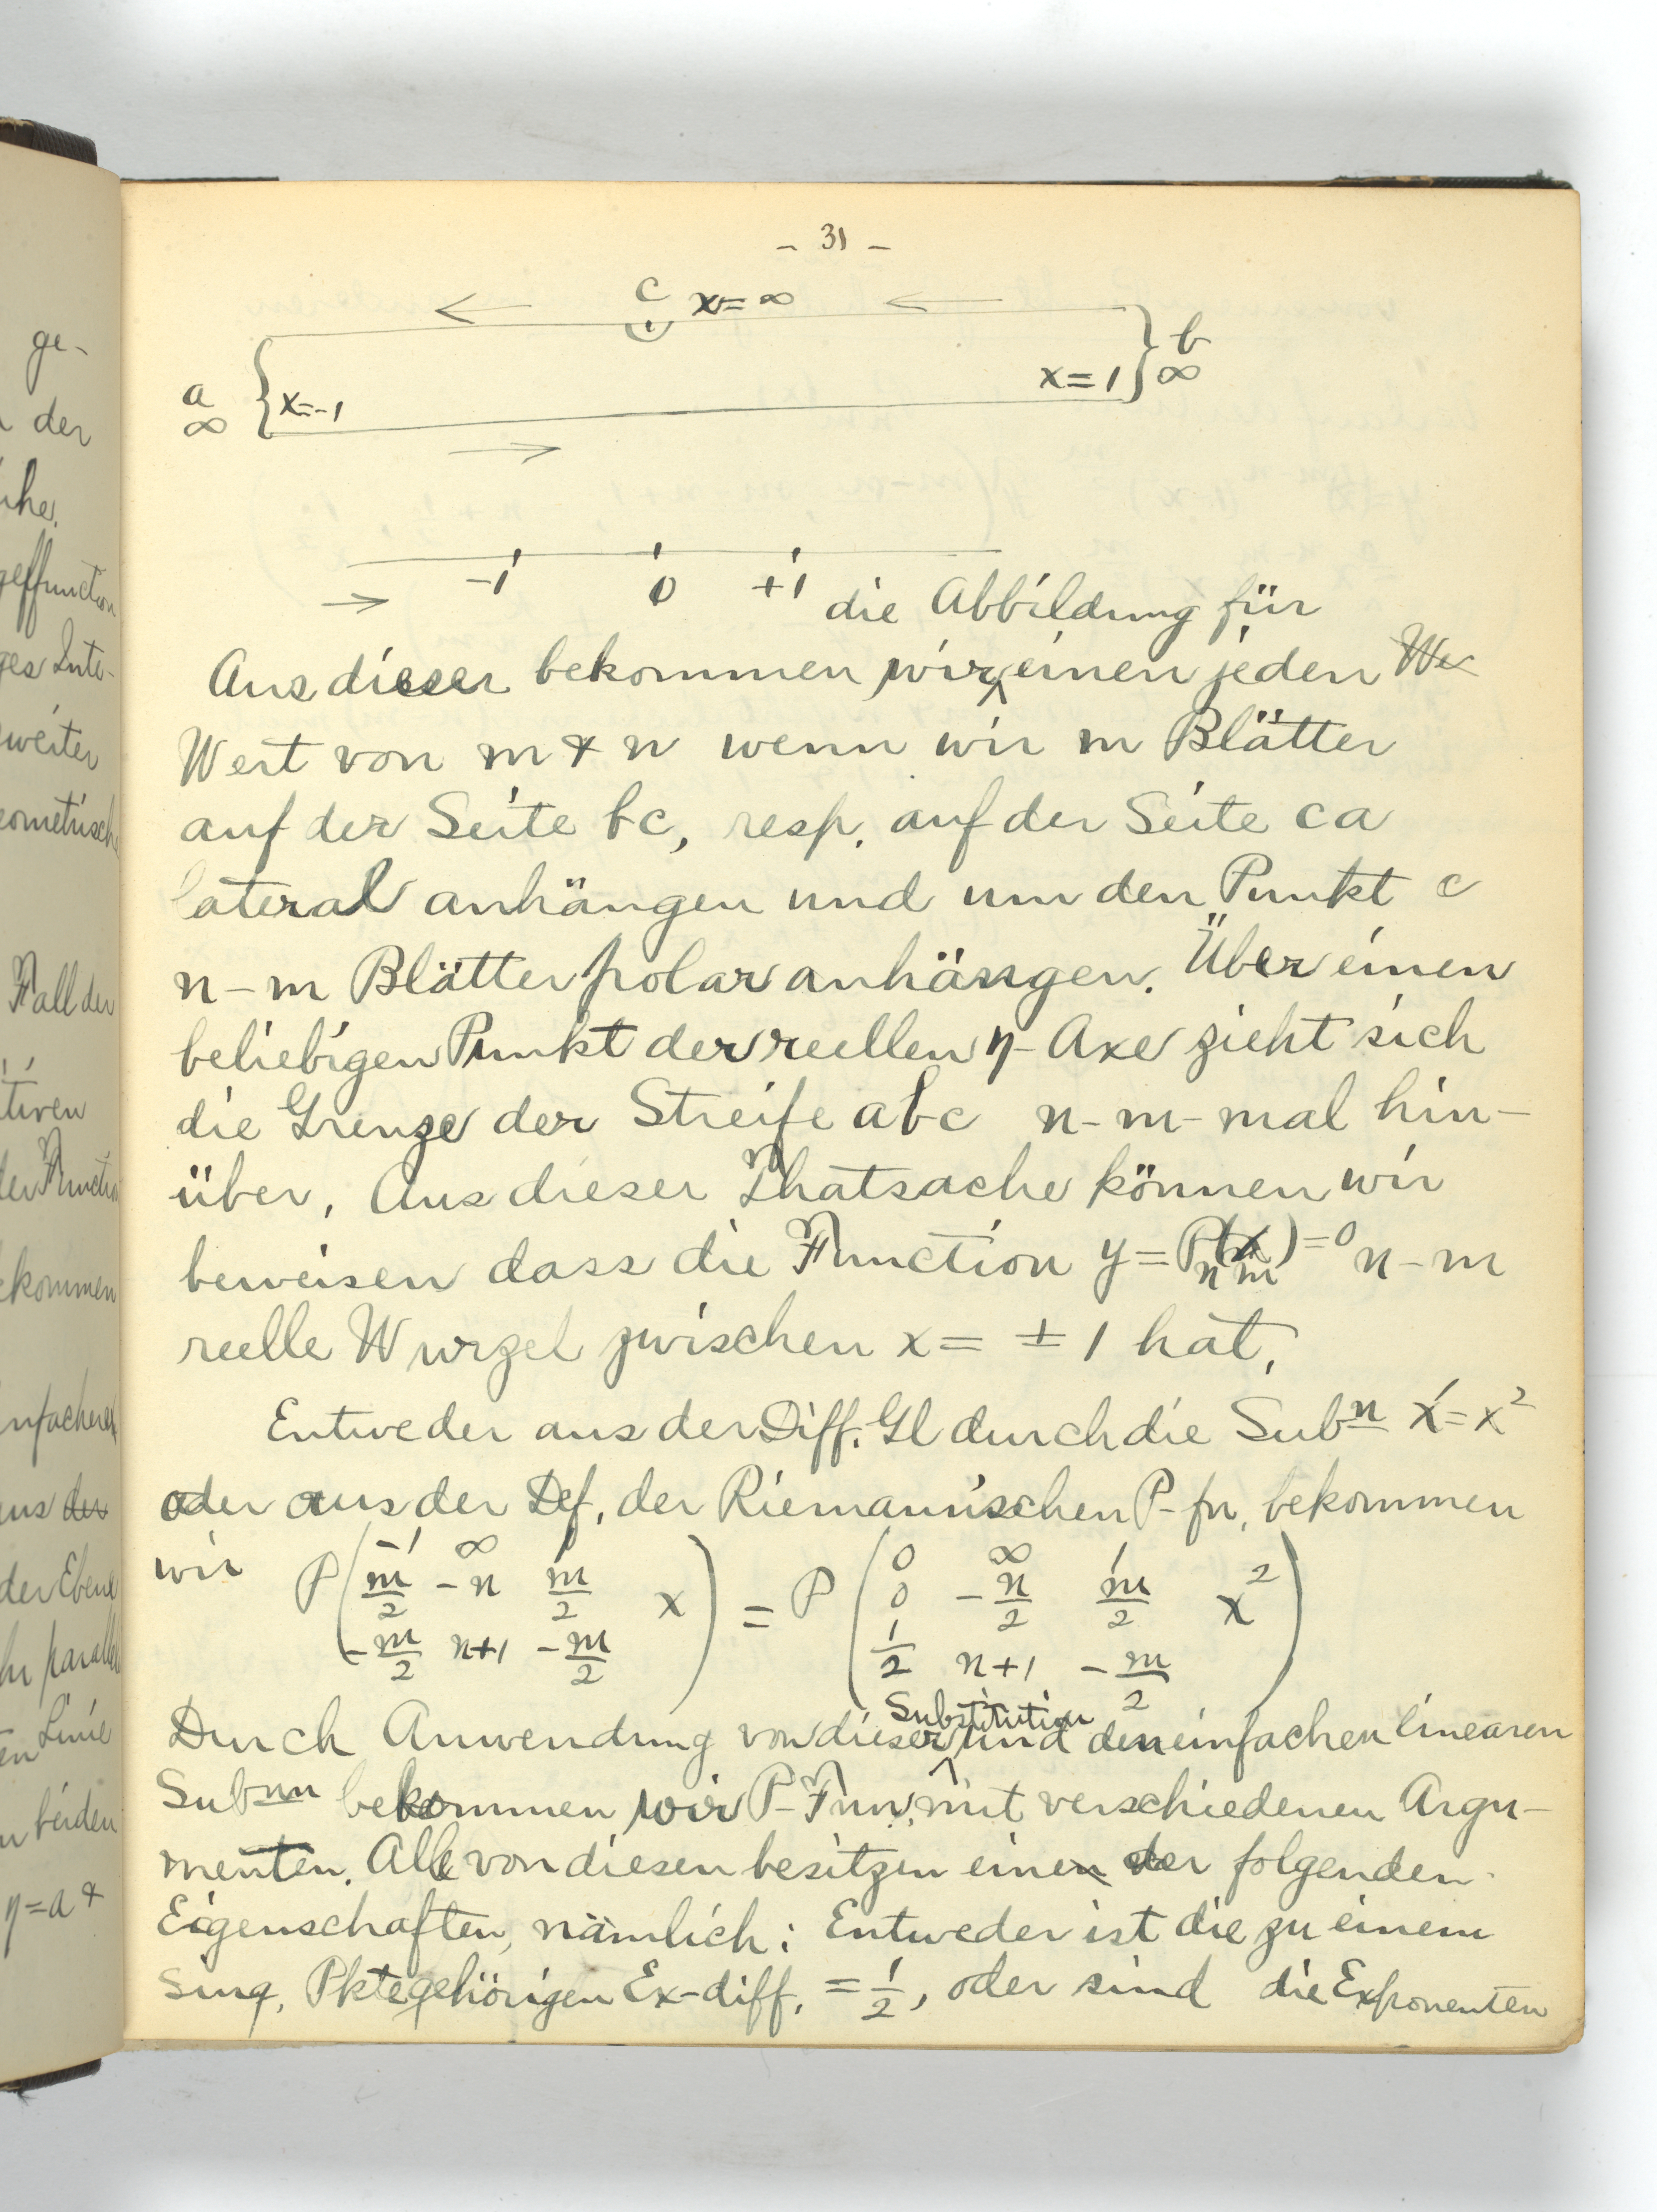 - 31 -
c x = ∞
b
a x = -1 x = 1 ∞
∞
-1 0 +1
die Abbildung für
Aus dieser bekommen wir einen jeden We
Wert von m & n wenn wir m Blätter
auf der Seite bc, resp. auf der Seite ca
lateral anhängen und um den Punkt c
n-m Blätter polar anhängen. Über einen
beliebigen Punkt der reellen η-Axe zieht sich
die Grenze der Streife abc n-m-mal hin-
über. Aus dieser Thatsache können wir
beweisen dass die Function y = P_{nm}(x) = 0 n-m
reelle Wurzel zwischen x = ±1 hat.
Entweder aus der Diff. Gl durch die Subn x' = x²
oder aus der Def. der Riemannischen P-fn. bekommen
wir P( -1 ∞ 1
m/2 -n m/2 x
-m/2 n+1 -m/2 ) = P( 0 ∞ 1
0 -n/2 m/2 x²
1/2 n+1 -m/2 )
Substitution
Durch Anwendung von dieser und den einfachen linearen
Subnn bekommen wir P-Fnn. mit verschiedenen Argu-
menten. Alle von diesen besitzen einen der folgenden
Eigenschaften, nämlich: Entweder ist die zu einem
sing. Pkte gehörigen Ex-diff. = 1/2, oder sind die Exponenten
ge-
der
geffunction
ges Inte-
zweiter
eometrisch
Fall der
tiven
der Function
ekommen
nfacheren
aus der
der Ebene
Linie
beiden
η = a +